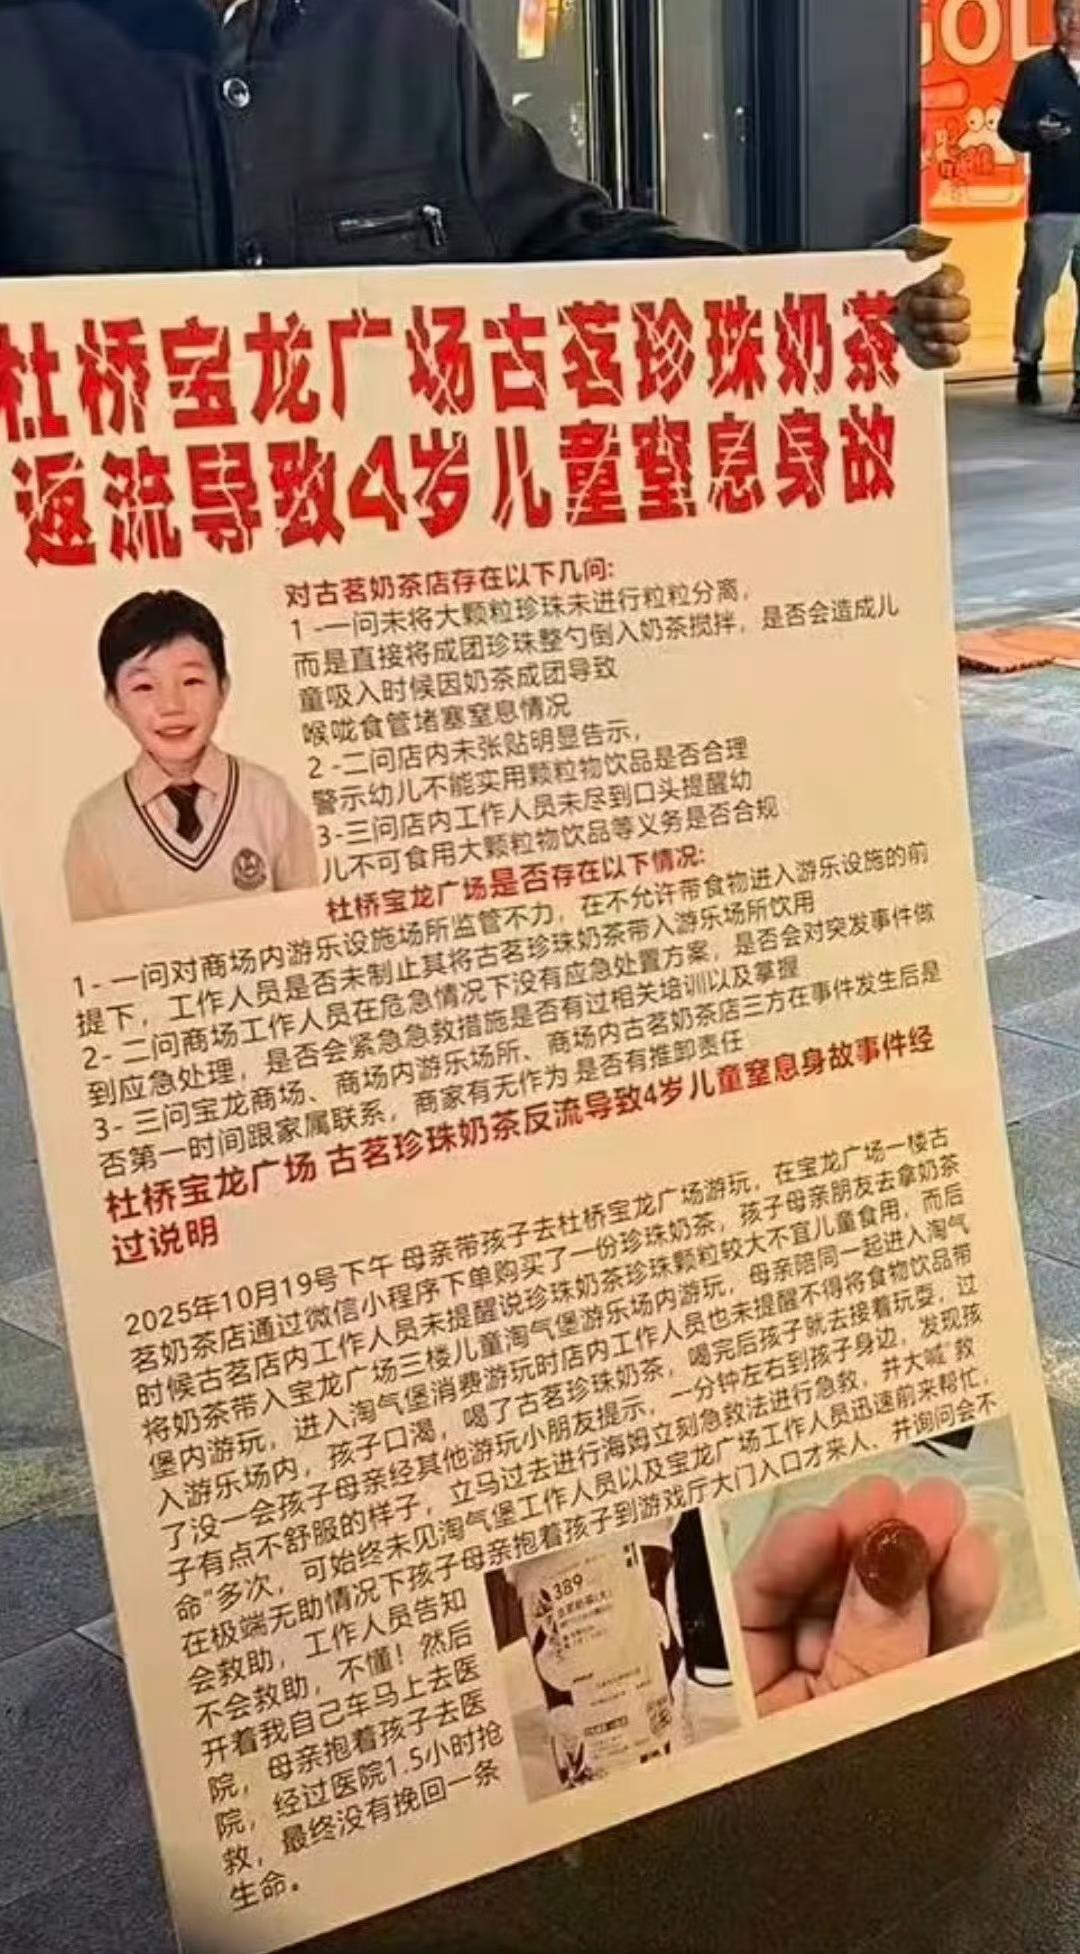 GOL
杜桥宝龙广场古茗珍珠奶茶
返流导致4岁儿童窒息身故
对古茗奶茶店存在以下几问:
1 -一问未将大颗粒珍珠未进行粒粒分离，
而是直接将成团珍珠整勺倒入奶茶搅拌，是否会造成儿
童吸入时候因奶茶成团导致
喉咙食管堵塞窒息情况
2 -二问店内未张贴明显告示，
警示幼儿不能实用颗粒物饮品是否合理
3-三问店内工作人员未尽到口头提醒幼
儿不可食用大颗粒物饮品等义务是否合规
杜桥宝龙广场是否存在以下情况:
1- 一问对商场内游乐设施场所监管不力，在不允许带食物进入游乐设施的前
提下，工作人员是否未制止其将古茗珍珠奶茶带入游乐场所饮用
2- 二问商场工作人员在危急情况下没有应急处置方案，是否会对突发事件做
到应急处理，是否会紧急急救措施是否有过相关培训以及掌握
3- 三问宝龙商场、商场内游乐场所、商场内古茗奶茶店三方在事件发生后是
否第一时间跟家属联系，商家有无作为 是否有推卸责任
杜桥宝龙广场 古茗珍珠奶茶反流导致4岁儿童窒息身故事件经
过说明
2025年10月19号下午 母亲带孩子去杜桥宝龙广场游玩，在宝龙广场一楼古
茗奶茶店通过微信小程序下单购买了一份珍珠奶茶，孩子母亲朋友去拿奶茶
时候古茗店内工作人员未提醒说珍珠奶茶珍珠颗粒较大不宜儿童食用，而后
将奶茶带入宝龙广场三楼儿童淘气堡游乐场内游玩，母亲陪同一起进入淘气
堡内游玩，进入淘气堡消费游玩时店内工作人员也未提醒不得将食物饮品带
入游乐场内，孩子口渴，喝了古茗珍珠奶茶，喝完后孩子就去接着玩耍，过
了没一会孩子母亲经其他游玩小朋友提示，一分钟左右到孩子身边，发现孩
子有点不舒服的样子，立马过去进行海姆立刻急救法进行急救，并大喊"救
命"多次，可始终未见淘气堡工作人员以及宝龙广场工作人员迅速前来帮忙，
在极端无助情况下孩子母亲抱着孩子到游戏厅大门入口才来人、并询问会不
会救助，工作人员告知
不会救助，不懂！然后
开着我自己车马上去医
院，母亲抱着孩子去医
院，经过医院1.5小时抢
救，最终没有挽回一条
生命。
389